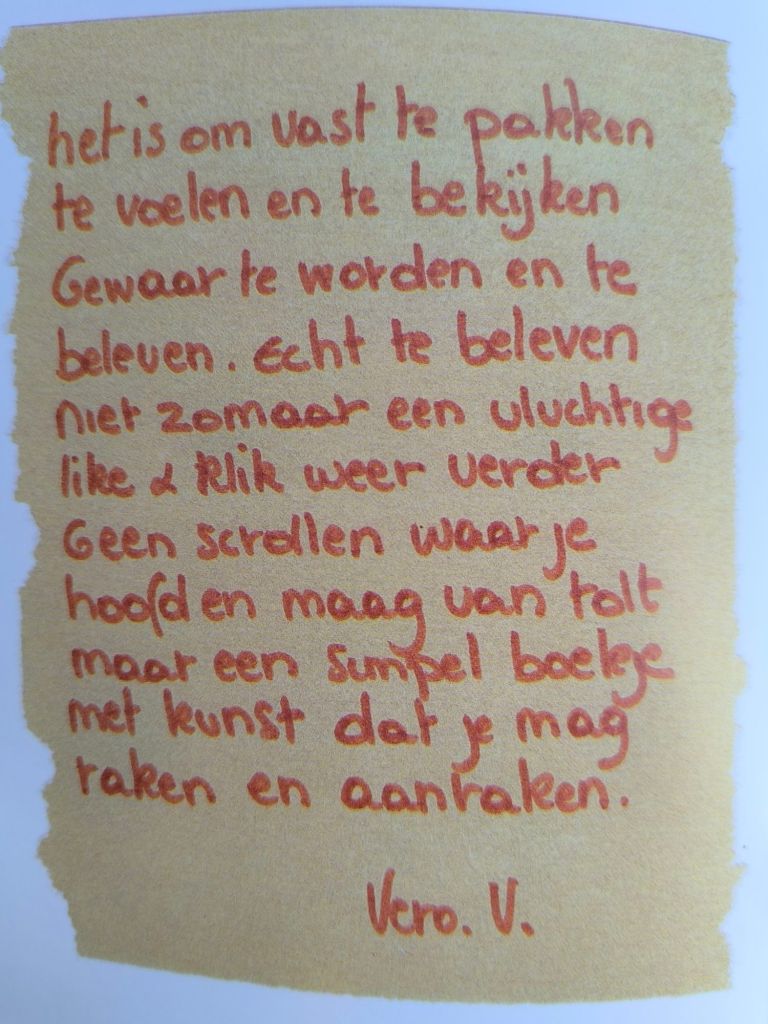 het is om vast te pakken
te voelen en te bekijken
Gewaar te worden en te
beleven. Echt te beleven
niet zomaar een vluchtige
like & klik weer verder
Geen scrollen waar je
hoofd en maag van tolt
maar een simpel boekje
met kunst dat je mag
raken en aanraken.
Vero. V.